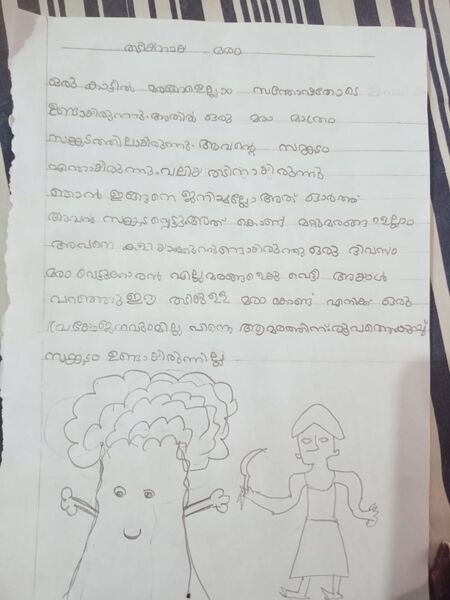 തടിയനായ മരം
ഒരു കാട്ടിൽ മരങ്ങളെല്ലാം സന്തോഷത്തോടെ
ഉണ്ടായിരുന്നു. അതിൽ ഒരു മരം മാത്രം
സങ്കടത്തിലായിരുന്നു. അവന്റെ സങ്കടം
എന്തായിരുന്നു. വലിയ തടിന്നായിരുന്നു
ഞാൻ ഇങ്ങനെ ജനിച്ചല്ലോ അത് ഓർത്ത്
അവൻ സങ്കടപ്പെട്ടു അത് കൊണ്ട് മറ്റുമരങ്ങളെല്ലാം
അവനെ കളിയാക്കുന്നുണ്ടായിരുന്നു ഒരു ദിവസം
മരം വെട്ടുകാരൻ എല്ലമരങ്ങളെക്കു വെട്ടി അയാൾ
പറഞ്ഞു ഈ തടിക്കുള്ള മരം കൊണ്ട് എനിക്ക് ഒരു
പ്രയോജനവുമില്ല പിന്നെ ആമരത്തിന്
സങ്കടം ഉണ്ടായിരുന്നില്ല